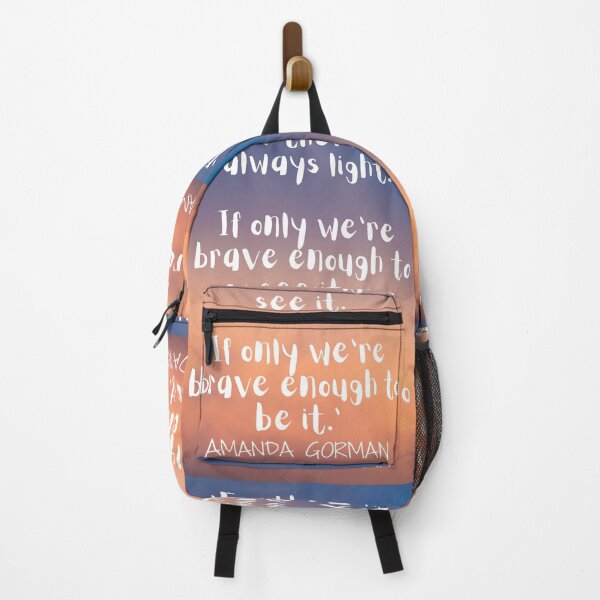 always light.
If only we're
brave enough to
see it.
If only we're
brave enough to
be it.'
AMANDA GORMAN